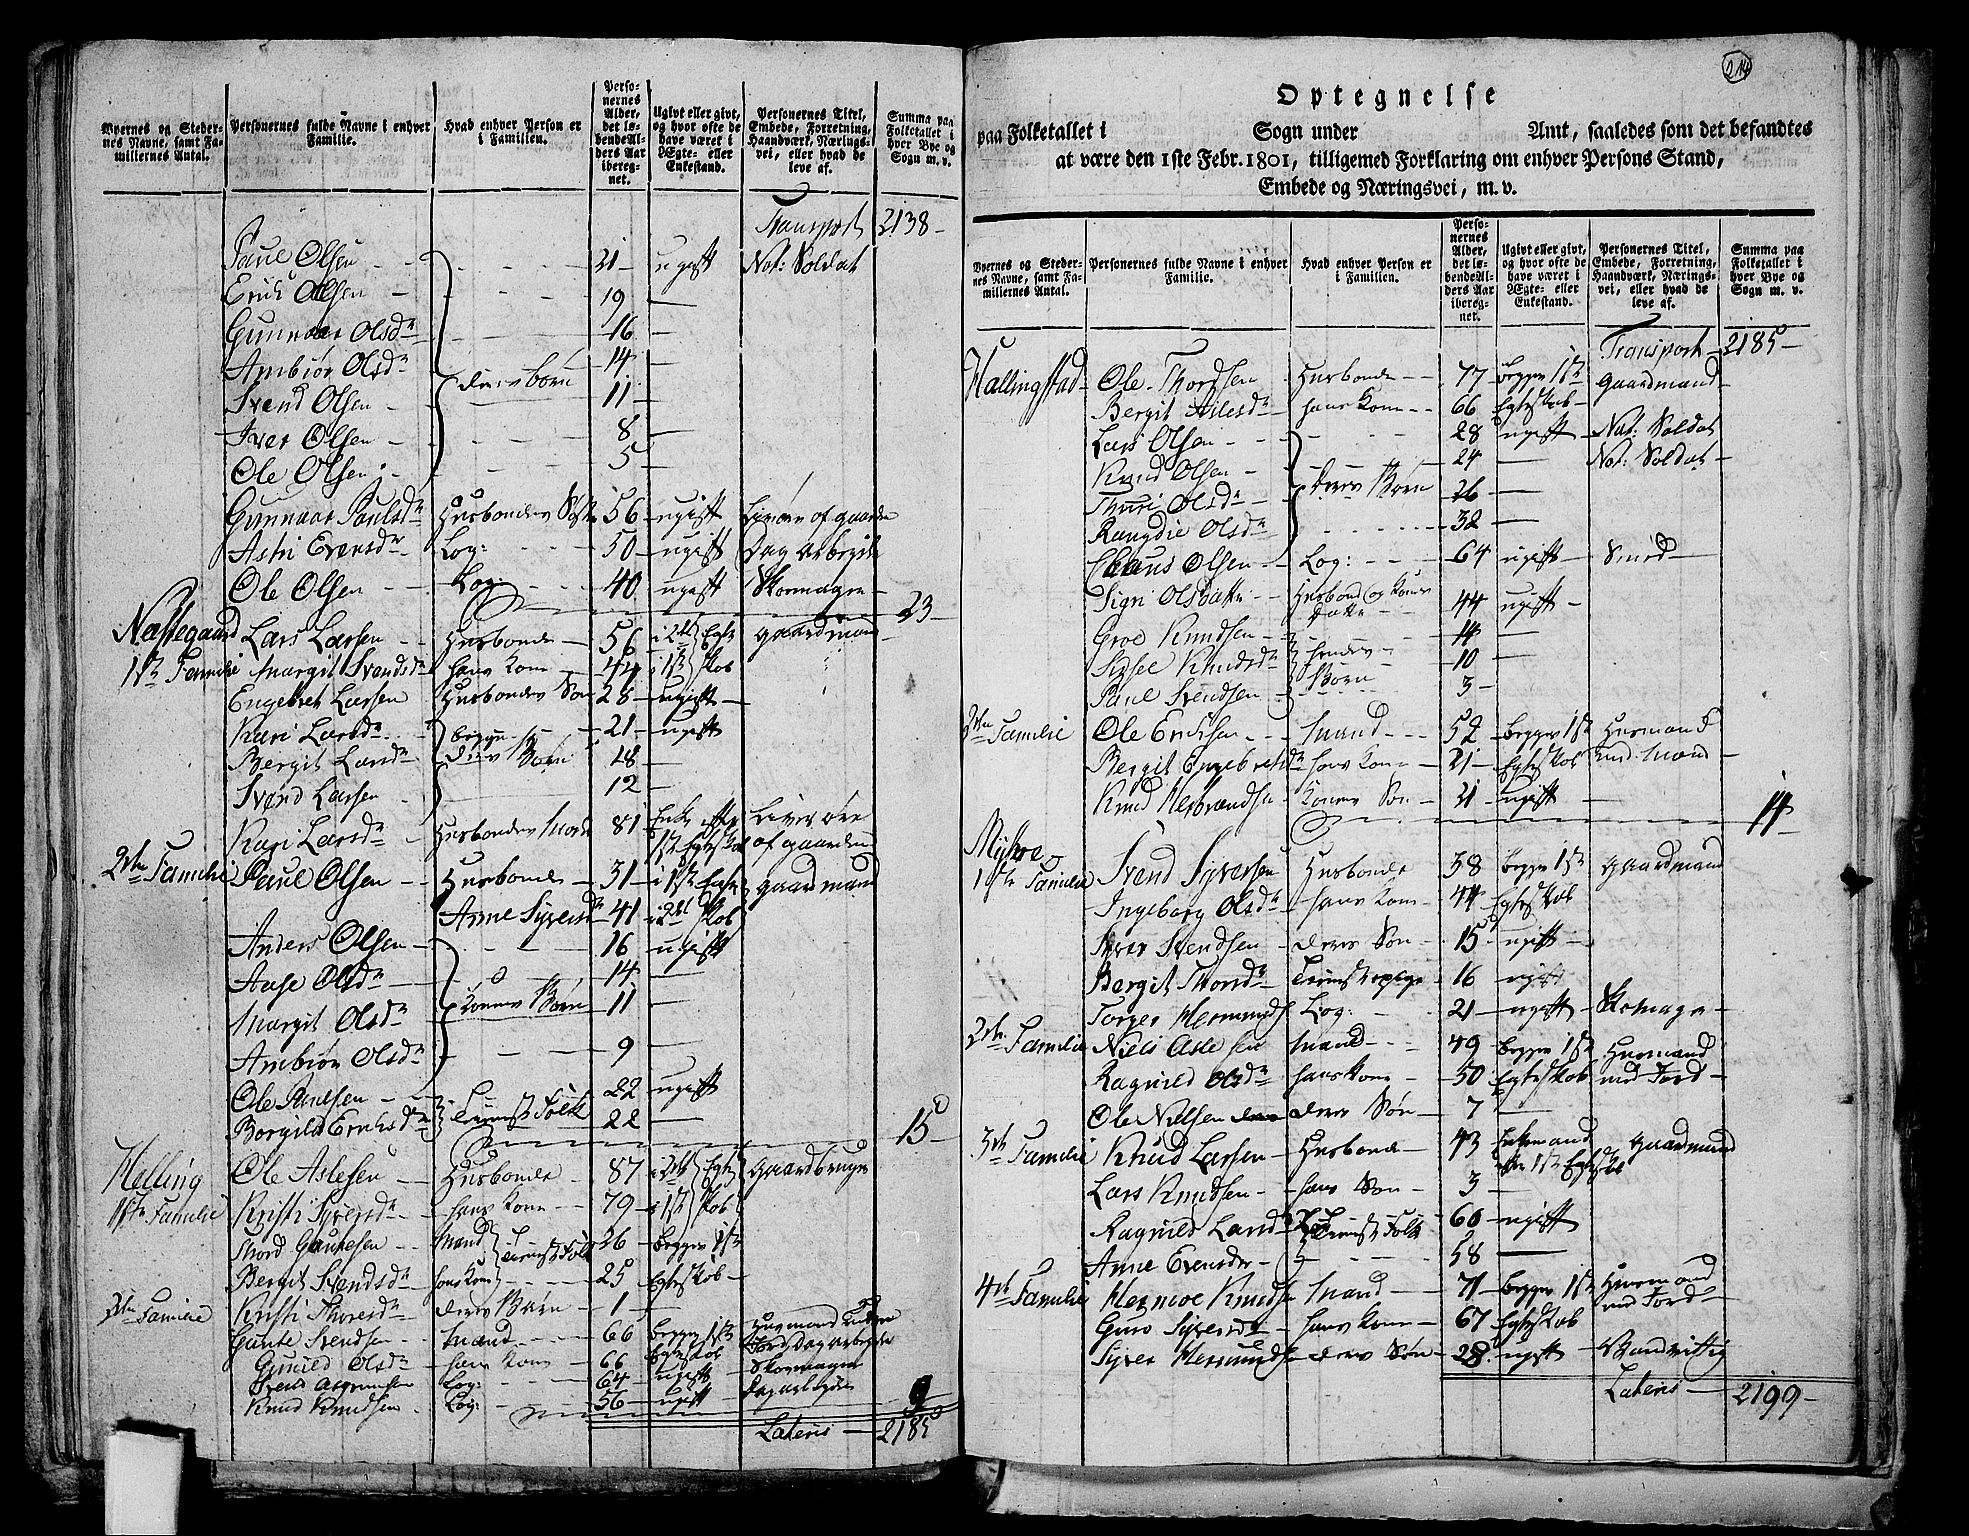 Byernes og Stedernes Navne, samt Familiernes Antal.
Personernes fulde Navne i enhver Familie.
Hvad enhver Person er i Familien.
Personernes Alder, det løbende Alders Aar iberegnet.
Ugivt eller givt, og hvor ofte de have været i Ægte- eller Enkestand.
Personernes Titel, Embede, Forretning, Haandværk, Næringsvei, eller hvad de leve af.
Summa paa Folketallet i hver Bye og Sogn m. v.
Transport 2138-
Paul Olsen - - - - 21- ugift Nat: Soldat
Erich Olsen - - 19 —
Gunnaar Olsdr 16 —
Ambiør Olsdr 14 —
Svend Olsen - deres børn 11 —
Iver Olsen - 8 —
Ole Olsen - 5 —
Gunnaar Paulsdr Husbondens 56 ugift Lever af gaarden
Astri Evensdr Log: - - 50 ugift Dag arbeyde
Ole Olsen - - Log: - - 40 ugift Skomager
23
Næssegaard Lars Larsen - Husbonde - 56 i 2det Egte gaardmand
1ste Familie Margit Svendsdr hans Kone 44 i 1ste skab
Engebret Larsen Husbondens Søn 28 ugift
Kari Larsdr begge 21 ugift
Bergit Larsdr deres Børn 18 —
Svend Larsen 12 —
Kari Larsdr Husbondens Moder 81 Enke efter Lever
1ste Egteskab af gaarden
2den Familie Paul Olsen - Husbonde - 31 i 1ste Egte gaardmand
Anne Syversdr 41 i 2det skab
Anders Olsen - 16 ugift
Aase Olsdr - 14 —
Margit Olsdr Konens Børn 11 —
Ambiør Olsdr 9 —
Ole Paulsen - - 22 ugift
Borgild Erichsdr Tienste Folk 22 —
15
Helling Ole Aslesen Husbonde 87 i 2det Egte gaardbruger
1ste Familie Kristi Syversdr - hans Kone - 79 i 1ste skab
Thord Gautesen - - Mand Tienstefolk 26 begge 1ste
Bergit Svendsdr hans Kone - - - 25 Egteskab
2den Familie Kristi Thoresdr - deres Børn 1 —
Gaute Svendsen - Mand - - - 66 begge 1ste Huusmand uden
Gunild Olsdr hans Kone 66 Egteskab Jord, Dag arbeyde
Svend Log: 64 ugift Skomager
Knud Knudsen Log: 56 ugift dag arbeyde
9
Lateris — 2185
214
Optegnelse
paa Folketallet i Sogn under Amt, saaledes som det befandtes
at være den 1ste Febr. 1801, tilligemed Forklaring om enhver Persons Stand,
Embede og Næringsvei, m. v.
Byernes og Stedernes Navne, samt Familiernes Antal.
Personernes fulde Navne i enhver Familie.
Hvad enhver Person er i Familien.
Personernes Alder, det løbende Alders Aar iberegnet.
Ugivt eller givt, og hvor ofte de have været i Ægte- eller Enkestand.
Personernes Titel, Embede, Forretning, Haandværk, Næringsvei, eller hvad de leve af.
Summa paa Folketallet i hver Bye og Sogn m. v.
Transport - 2185-
Hallingstad- Ole Thordsen Husbonde - - 77 begge 1ste gaardmand
Bergit Aslesdr hans Kone - 66 Egteskab
Lars Olsen - - - 28 ugift - Nat: Soldat
Knud Olsen - - 24 — Nat: Soldat
Thuri Olsdr - deres Børn 26 —
Rangdie Olsdr 32 —
Claus Olsen - Log: - - - 64 ugift Smed
Sigri Olsdatter Husbond og Konens Datter 44 ugift -
Groe Knudsen - 14 —
Sidsel Knudsdr hendes Børn 10 —
Paul Svendsen 3 —
2den Familie Ole Erichsen - - Mand - - - 52 begge 1ste Huusmand
Bergit Engebretsdr hans Kone - 21 Egteskab
Knud Herbrandsen Konens Søn - 21 ugift —
14
Myhre
1ste Familie Svend Syversen Husbonde 58 begge 1ste gaardmand
Ingeborg Olsdr - hans Kone - 44 Egteskab
Iver Svendsen - deres Søn - 15 ugift -
Bergit Thordr Tienste 16 ugift
Torger Hermunds Log: - 21 ugift Skomager -
2den Familie Niels Aslesen Mand - - - 49 begge 1ste Huusmand
Ragnild Olsdr hans Kone - 50 Egteskab med Jord
Ole Nielsen deres Søn - 7 —
3die Familie Knud Larsen - Husbonde - 43 Enkemand gaardmand
efter 1ste Egteskab
Lars Knudsen - hans Søn - 3 —
Ragnild Larsdr Tienste Folk 60 ugift
Anne Evensdr - 58 —
4de Familie Hermoe Knudsen Mand - - 71 begge 1ste Huusmand
Guro Syversdr hans Kone - 67 Egteskab med Jord
Syver Hermundsen deres Søn - 28 ugift Vandvittig
Lateris — 2199-